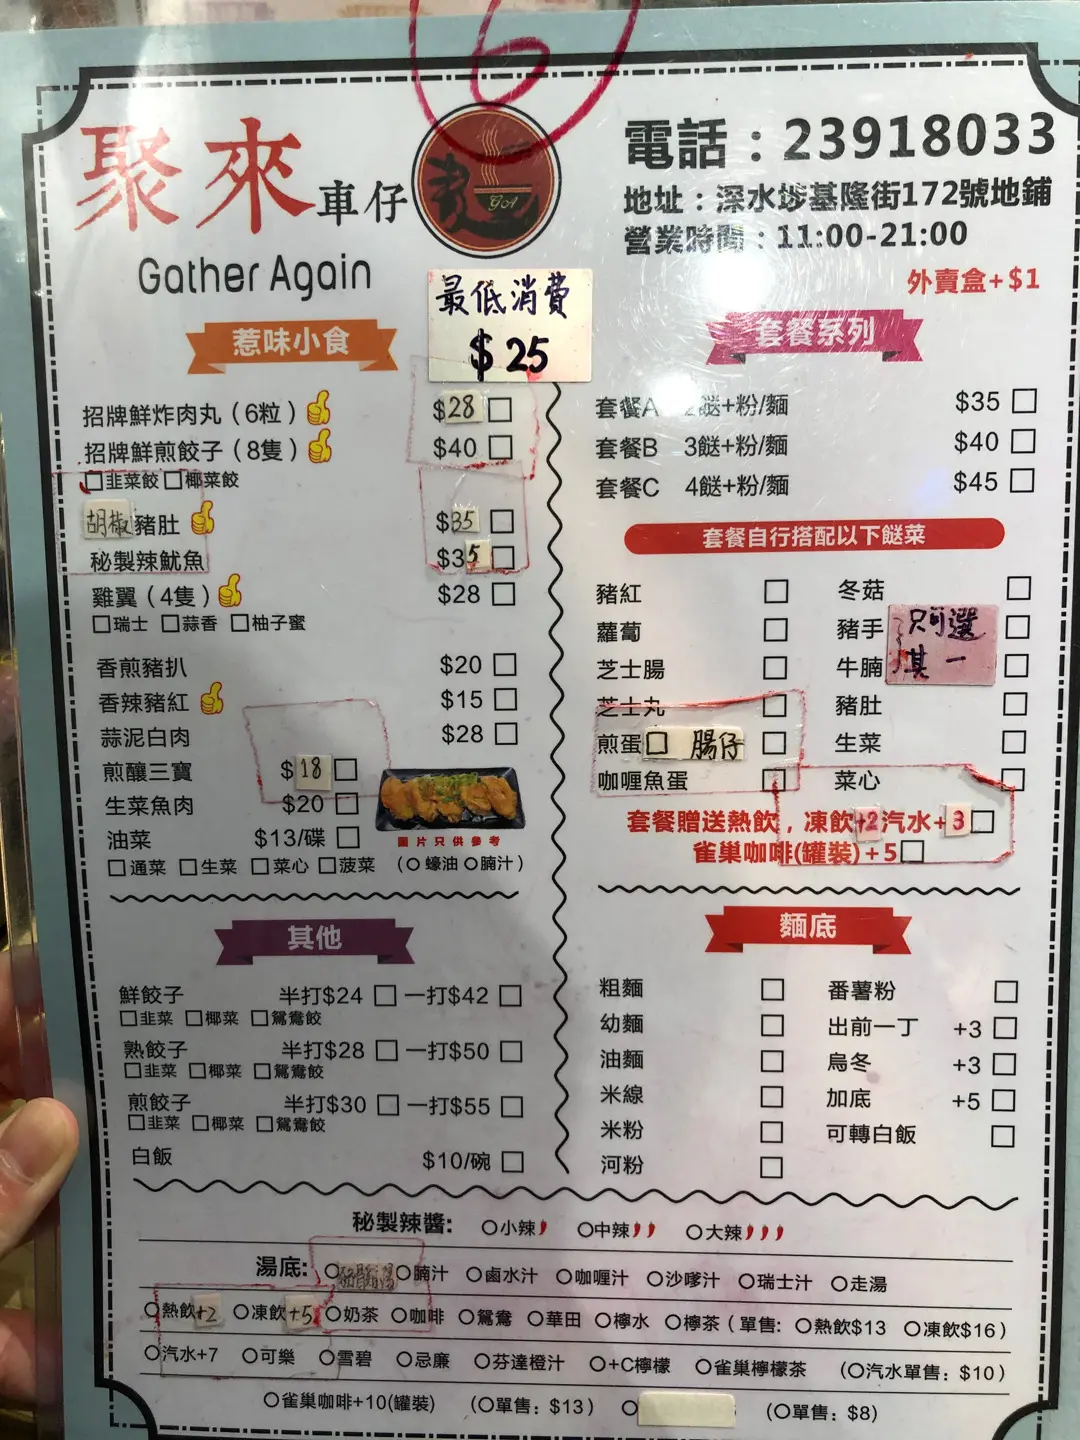 6
聚來車仔麵
GA
Gather Again
電話：23918033
地址：深水埗基隆街172號地鋪
營業時間：11:00-21:00
外賣盒+$1
最低消費
$25
惹味小食
招牌鮮炸肉丸（6粒） $28
招牌鮮煎餃子（8隻） $40
韭菜餃 椰菜餃
胡椒豬肚 $35
秘製辣魷魚 $35
雞翼（4隻） $28
瑞士 蒜香 柚子蜜
香煎豬扒 $20
香辣豬紅 $15
蒜泥白肉 $28
煎釀三寶 $18
生菜魚肉 $20
油菜 $13/碟
圖片只供參考
通菜 生菜 菜心 菠菜 （蠔油 腩汁）
套餐系列
套餐A 2餸+粉/麵 $35
套餐B 3餸+粉/麵 $40
套餐C 4餸+粉/麵 $45
套餐自行搭配以下餸菜
豬紅 冬菇
蘿蔔 豬手
芝士腸 牛腩
只可選
其一
芝士丸 豬肚
煎蛋 腸仔 生菜
咖喱魚蛋 菜心
套餐贈送熱飲，凍飲+2汽水+3
雀巢咖啡(罐裝)+5
其他
鮮餃子 半打$24 一打$42
韭菜 椰菜 鴛鴦餃
熟餃子 半打$28 一打$50
韭菜 椰菜 鴛鴦餃
煎餃子 半打$30 一打$55
韭菜 椰菜 鴛鴦餃
白飯 $10/碗
麵底
粗麵 番薯粉
幼麵 出前一丁 +3
油麵 烏冬 +3
米線 加底 +5
米粉 可轉白飯
河粉
秘製辣醬: 小辣 中辣 大辣
湯底: 腩汁 鹵水汁 咖喱汁 沙嗲汁 瑞士汁 走湯
熱飲+2 凍飲+5 奶茶 咖啡 鴛鴦 華田 檸水 檸茶（單售: 熱飲$13 凍飲$16）
汽水+7 可樂 雪碧 忌廉 芬達橙汁 +C檸檬 雀巢檸檬茶 （汽水單售: $10）
雀巢咖啡+10(罐裝) （單售: $13） （單售: $8）